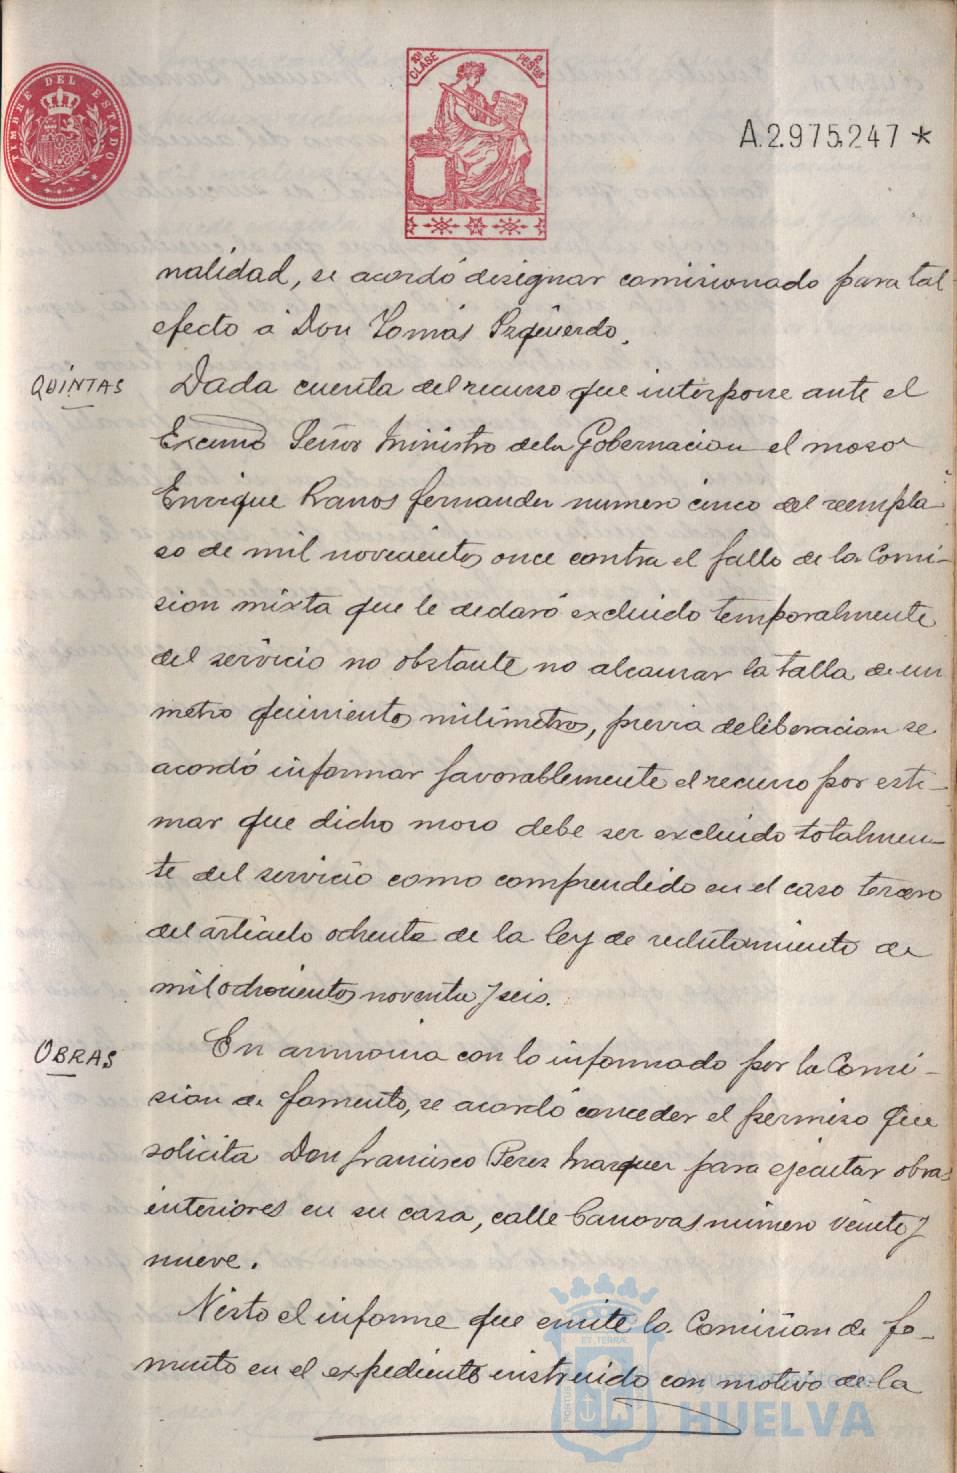 TIMBRE DEL ESTADO
10ª CLASE 2 PESETAS
A.2.975.247 *
nalidad, se acordó designar comisionado para tal
efecto á Don Tomás Izquierdo.
QUINTAS
Dada cuenta del recurso que interpone ante el
Excmo Señor Ministro de la Gobernacion el moso
Enrique Ramos Fernandez numero cinco del reempla-
so de mil novecientos once contra el fallo de la Comi-
sion mixta que le declaró excluido temporalmente
del servicio no obstante no alcanzar la talla de un
metro quinientos milimetros, previa deliberacion se
acordó informar favorablemente el recurso por esti-
mar que dicho moso debe ser excluido totalmen-
te del servicio como comprendido en el caso tercero
del articulo ochenta de la ley de reclutamiento de
mil ochocientos noventa y seis.
OBRAS
En armonia con lo informado por la Comi-
sion de fomento, se acordó conceder el permiso que
solicita Don Francisco Perez Marquez para ejecutar obras
interiores en su casa, calle Canovas número veinte y
nueve.
Visto el informe que emite la Comision de fo-
mento en el expediente instruido con motivo de la
Ayuntamiento de
HUELVA